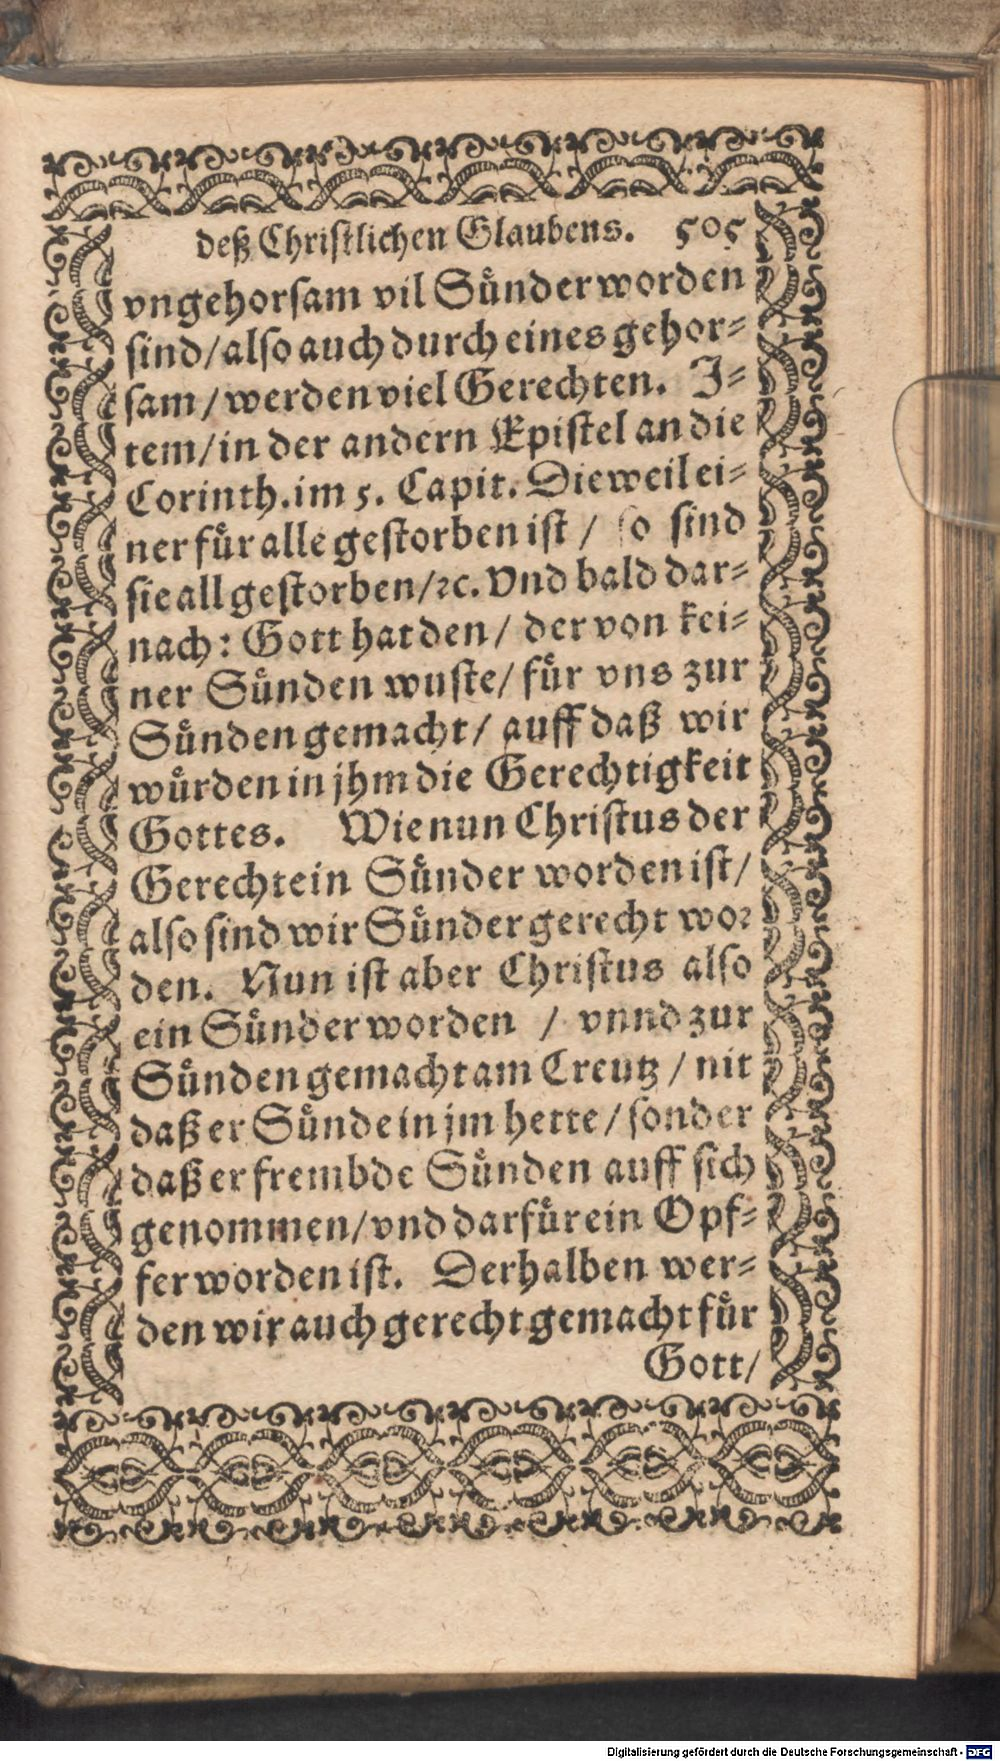 deß Christlichen Glaubens. 505
vngehorsam vil Sünder worden
sind/ also auch durch eines gehor-
sam/ werden viel Gerechten. I-
tem/ in der andern Epistel an die
Corinth. im 5. Capit. Dieweil ei-
ner für alle gestorben ist/ so sind
sie all gestorben/ꝛc. Vnd bald dar-
nach: Gott hat den/ der von kei-
ner Sünden wuste/ für vns zur
Sünden gemacht/ auff daß wir
würden in jhm die Gerechtigkeit
Gottes. Wie nun Christus der
Gerecht ein Sünder worden ist/
also sind wir Sünder gerecht wor
den. Nun ist aber Christus also
ein Sünder worden / vnnd zur
Sünden gemacht am Creutz/ nit
daß er Sünde in jm hette/ sonder
daß er frembde Sünden auff sich
genommen/ vnd darfür ein Opf-
fer worden ist. Derhalben wer-
den wir auch gerecht gemacht für
Gott/
Digitalisierung gefördert durch die Deutsche Forschungsgemeinschaft - DFG